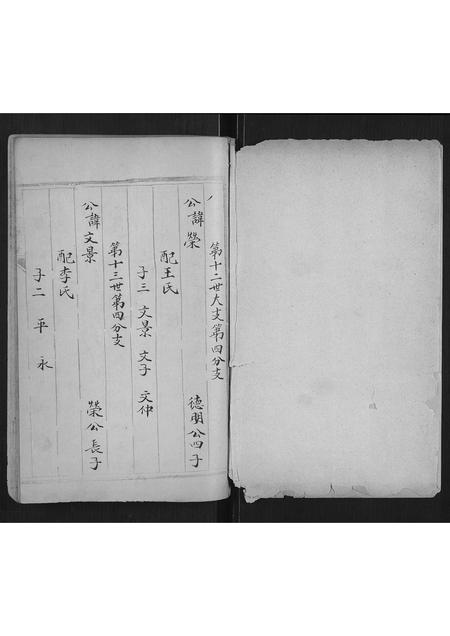 第十二世大支第四分支
公諱榮 德明公四子
配王氏
子三 文景 文子 文仲
第十三世第四分支
公諱文景 榮公長子
配李氏
子二 平 永